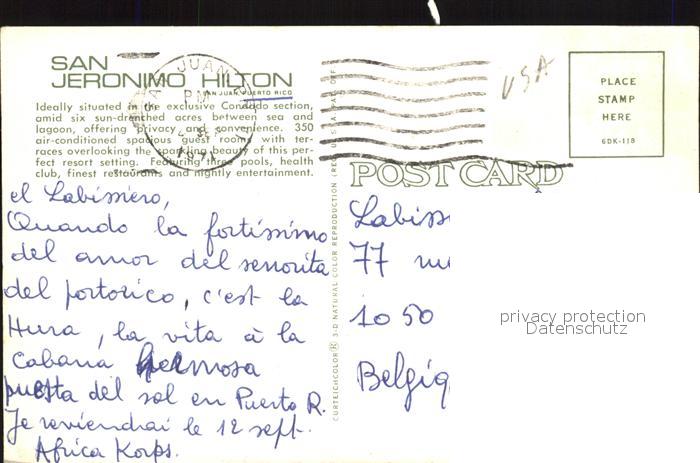 SAN
JERONIMO HILTON
SAN JUAN, PUERTO RICO
Ideally situated in the exclusive Condado section,
amid six sun-drenched acres between sea and
lagoon, offering privacy and convenience. 350
air-conditioned spacious guest rooms with ter-
races overlooking the sparkling beauty of this per-
fect resort setting. Featuring three pools, health
club, finest restaurants and nightly entertainment.
JUAN
PM
USA
PLACE
STAMP
HERE
6DK-118
POST CARD
el Labissero,
Quando la fortissimo
del amor del senorita
del portorico, c'est la
Hura, la vita à la
cabana hermosa
puesta del sol en Puerto R.
Je reviendrai le 12 sept.
Africa Korps.
CURTEICHCOLOR ® 3-D NATURAL COLOR REPRODUCTION
Labiss
77
1050
Belgiq
privacy protection
Datenschutz